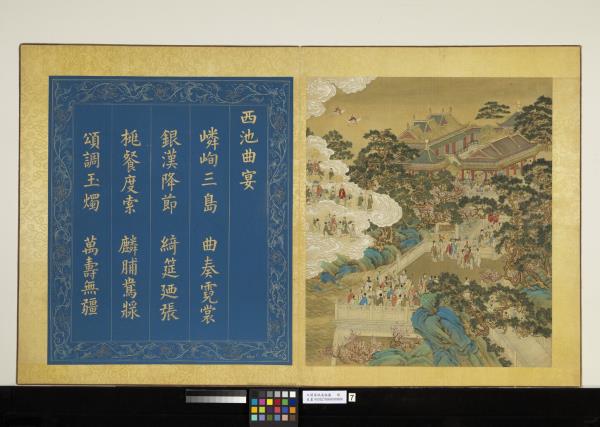 西池曲宴
嶙峋三島　曲奏霓裳
銀漢降節　綺筵迺張
桃餐度索　麟脯鴛𤖅
頌調玉燭　萬壽無疆
7